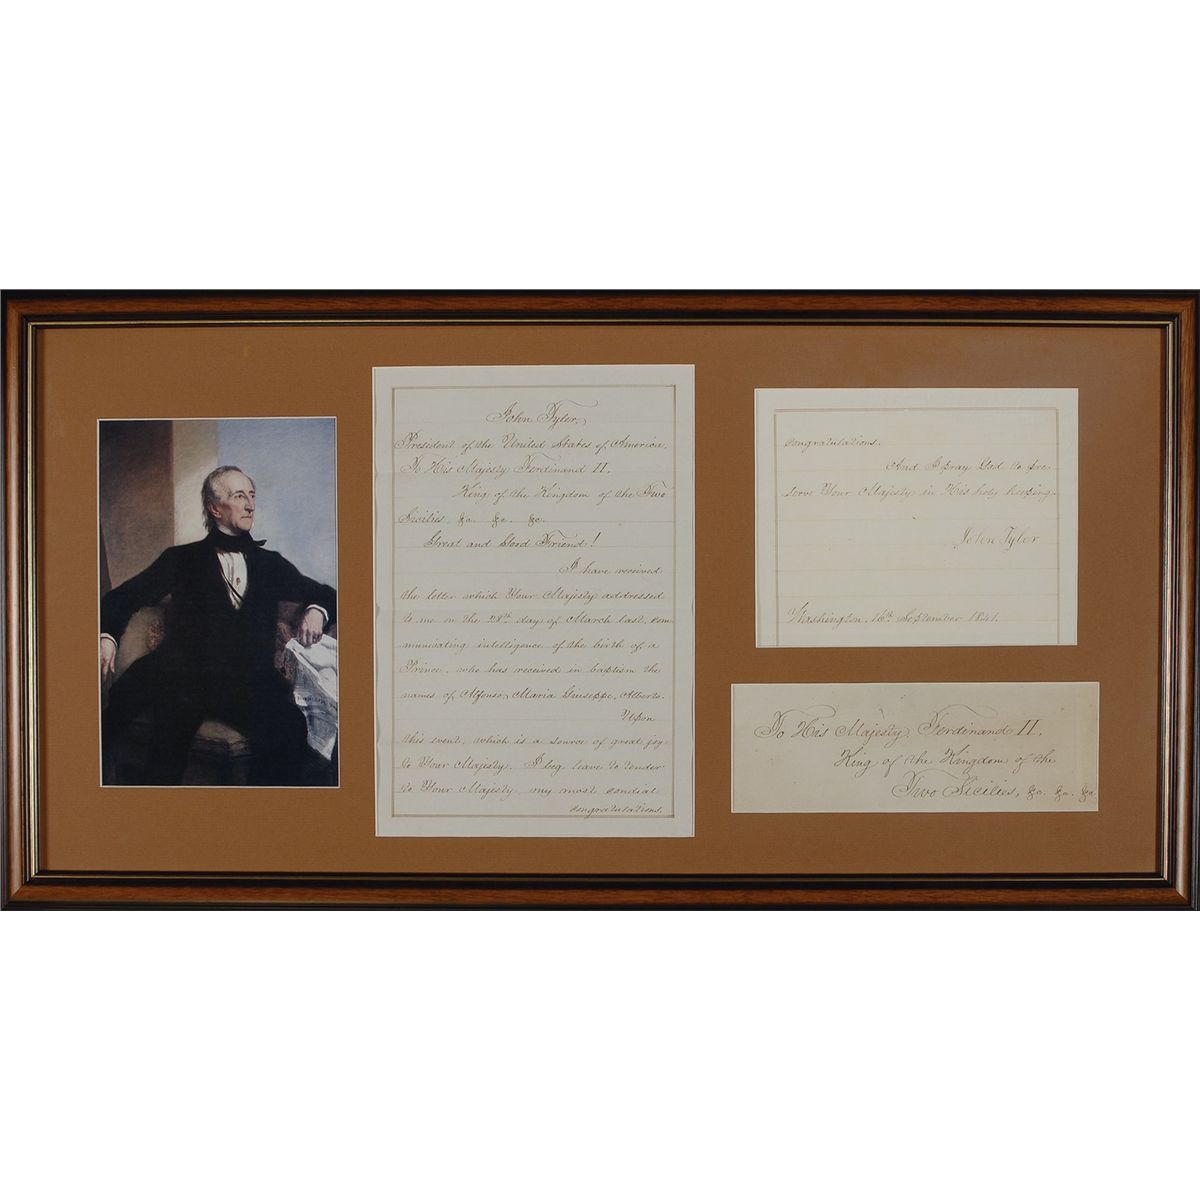 John Tyler,
President of the United States of America,
To His Majesty Ferdinand II,
King of the Kingdom of the Two
Sicilies, &c. &c. &c.
Great and Good Friend!
I have received
the letter which Your Majesty addressed
to me on the 28th day of March last, com-
municating intelligence of the birth of a
Prince, who has received in baptism the
names of Alfonso, Maria Giuseppe, Alberto.
Upon
this event, which is a source of great joy
to Your Majesty, I beg leave to tender
to Your Majesty, my most cordial
congratulations.
congratulations.
And I pray God to pre-
serve Your Majesty in His holy keeping.
John Tyler
Washington, 16th September 1841.
To His Majesty, Ferdinand II,
King of the Kingdom of the
Two Sicilies, &c. &c. &c.